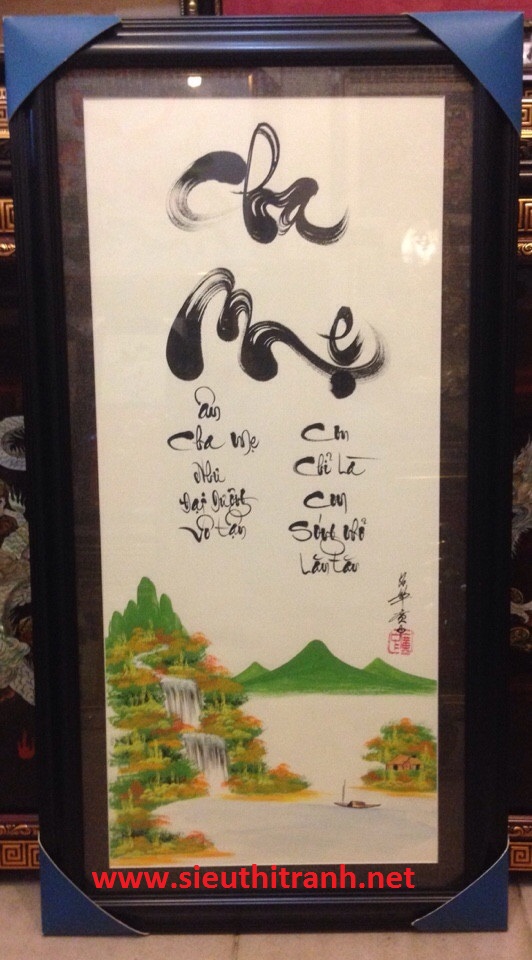 Cha
Mẹ
ân
Cha Mẹ
Như
Đại Dương
Vô tận
Con
Chỉ Là
Con
Sóng nhỏ
Lăn tăn
www.sieuthitranh.net